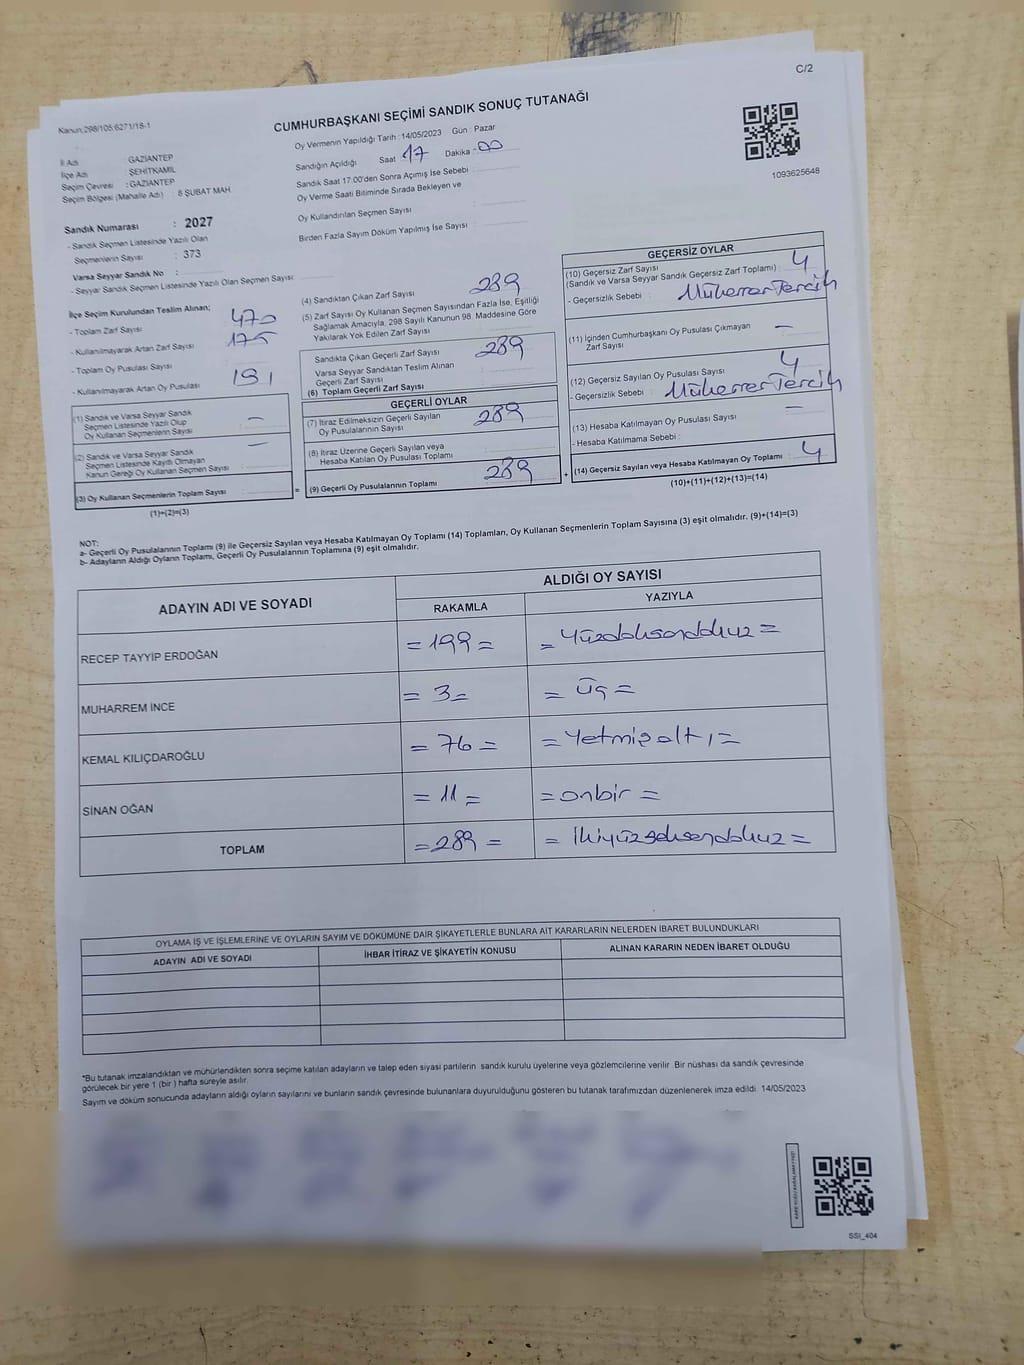 C/2
Kanun;298/105;6271/18-1
CUMHURBAŞKANI SEÇİMİ SANDIK SONUÇ TUTANAĞI
1093625648
İl Adı GAZİANTEP
İlçe Adı ŞEHİTKAMİL
Seçim Çevresi : GAZİANTEP
Seçim Bölgesi (Mahalle Adı) : 8 ŞUBAT MAH.
Sandık Numarası : 2027
- Sandık Seçmen Listesinde Yazılı Olan
Seçmenlerin Sayısı : 373
Varsa Seyyar Sandık No :
- Seyyar Sandık Seçmen Listesinde Yazılı Olan Seçmen Sayısı:
Oy Vermenin Yapıldığı Tarih : 14/05/2023 Gün : Pazar
Sandığın Açıldığı Saat 17 Dakika : 00
Sandık Saat 17:00'den Sonra Açımış İse Sebebi :
Oy Verme Saati Bitiminde Sırada Bekleyen ve
Oy Kullandırılan Seçmen Sayısı :
Birden Fazla Sayım Döküm Yapılmış İse Sayısı :
İlçe Seçim Kurulundan Teslim Alınan;
- Toplam Zarf Sayısı :
- Kullanılmayarak Artan Zarf Sayısı :
- Toplam Oy Pusulası Sayısı :
- Kullanılmayarak Artan Oy Pusulası 191
(1) Sandık ve Varsa Seyyar Sandık
Seçmen Listesinde Yazılı Olup
Oy Kullanan Seçmenlerin Sayısı : –
(2) Sandık ve Varsa Seyyar Sandık
Seçmen Listesinde Kayıtlı Olmayan
Kanun Gereği Oy Kullanan Seçmen Sayısı : –
(3) Oy Kullanan Seçmenlerin Toplam Sayısı :
(1)+(2)=(3)
(4) Sandıktan Çıkan Zarf Sayısı : 289
(5) Zarf Sayısı Oy Kullanan Seçmen Sayısından Fazla İse, Eşitliği
Sağlamak Amacıyla, 298 Sayılı Kanunun 98. Maddesine Göre
Yakılarak Yok Edilen Zarf Sayısı :
Sandıkta Çıkan Geçerli Zarf Sayısı : 289
Varsa Seyyar Sandıktan Teslim Alınan
Geçerli Zarf Sayısı :
(6) Toplam Geçerli Zarf Sayısı :
GEÇERLİ OYLAR
(7) İtiraz Edilmeksizin Geçerli Sayılan
Oy Pusulalarının Sayısı : 289
(8) İtiraz Üzerine Geçerli Sayılan veya
Hesaba Katılan Oy Pusulası Toplamı :
= (9) Geçerli Oy Pusulalarının Toplamı : 289 +
GEÇERSİZ OYLAR
(10) Geçersiz Zarf Sayısı
(Sandık ve Varsa Seyyar Sandık Geçersiz Zarf Toplamı) : 4
- Geçersizlik Sebebi : Mükerrer Tercih
(11) İçinden Cumhurbaşkanı Oy Pusulası Çıkmayan
Zarf Sayısı : –
(12) Geçersiz Sayılan Oy Pusulası Sayısı : 4
- Geçersizlik Sebebi : Mükerrer Tercih
(13) Hesaba Katılmayan Oy Pusulası Sayısı : –
- Hesaba Katılmama Sebebi :
(14) Geçersiz Sayılan veya Hesaba Katılmayan Oy Toplamı : 4
(10)+(11)+(12)+(13)=(14)
NOT:
a- Geçerli Oy Pusulalarının Toplamı (9) ile Geçersiz Sayılan veya Hesaba Katılmayan Oy Toplamı (14) Toplamları, Oy Kullanan Seçmenlerin Toplam Sayısına (3) eşit olmalıdır. (9)+(14)=(3)
b- Adayların Aldığı Oyların Toplamı, Geçerli Oy Pusulalarının Toplamına (9) eşit olmalıdır.
ADAYIN ADI VE SOYADI ALDIĞI OY SAYISI
RAKAMLA YAZIYLA
RECEP TAYYİP ERDOĞAN = 199 = = Yüzdoksandokuz =
MUHARREM İNCE = 3 = = üç =
KEMAL KILIÇDAROĞLU = 76 = = Yetmişaltı =
SİNAN OĞAN = 11 = = onbir =
TOPLAM = 289 = = İkiyüzseksendokuz =
OYLAMA İŞ VE İŞLEMLERİNE VE OYLARIN SAYIM VE DÖKÜMÜNE DAİR ŞİKAYETLERLE BUNLARA AİT KARARLARIN NELERDEN İBARET BULUNDUKLARI
ADAYIN ADI VE SOYADI İHBAR İTİRAZ VE ŞİKAYETİN KONUSU ALINAN KARARIN NEDEN İBARET OLDUĞU
*Bu tutanak imzalandıktan ve mühürlendikten sonra seçime katılan adayların ve talep eden siyasi partilerin sandık kurulu üyelerine veya gözlemcilerine verilir. Bir nüshası da sandık çevresinde
görülecek bir yere 1 (bir ) hafta süreyle asılır.
Sayım ve döküm sonucunda adayların aldığı oyların sayılarını ve bunların sandık çevresinde bulunanlara duyurulduğunu gösteren bu tutanak tarafımızdan düzenlenerek imza edildi 14/05/2023
KARE KODU KARALAMAYINIZ!
SSI_404